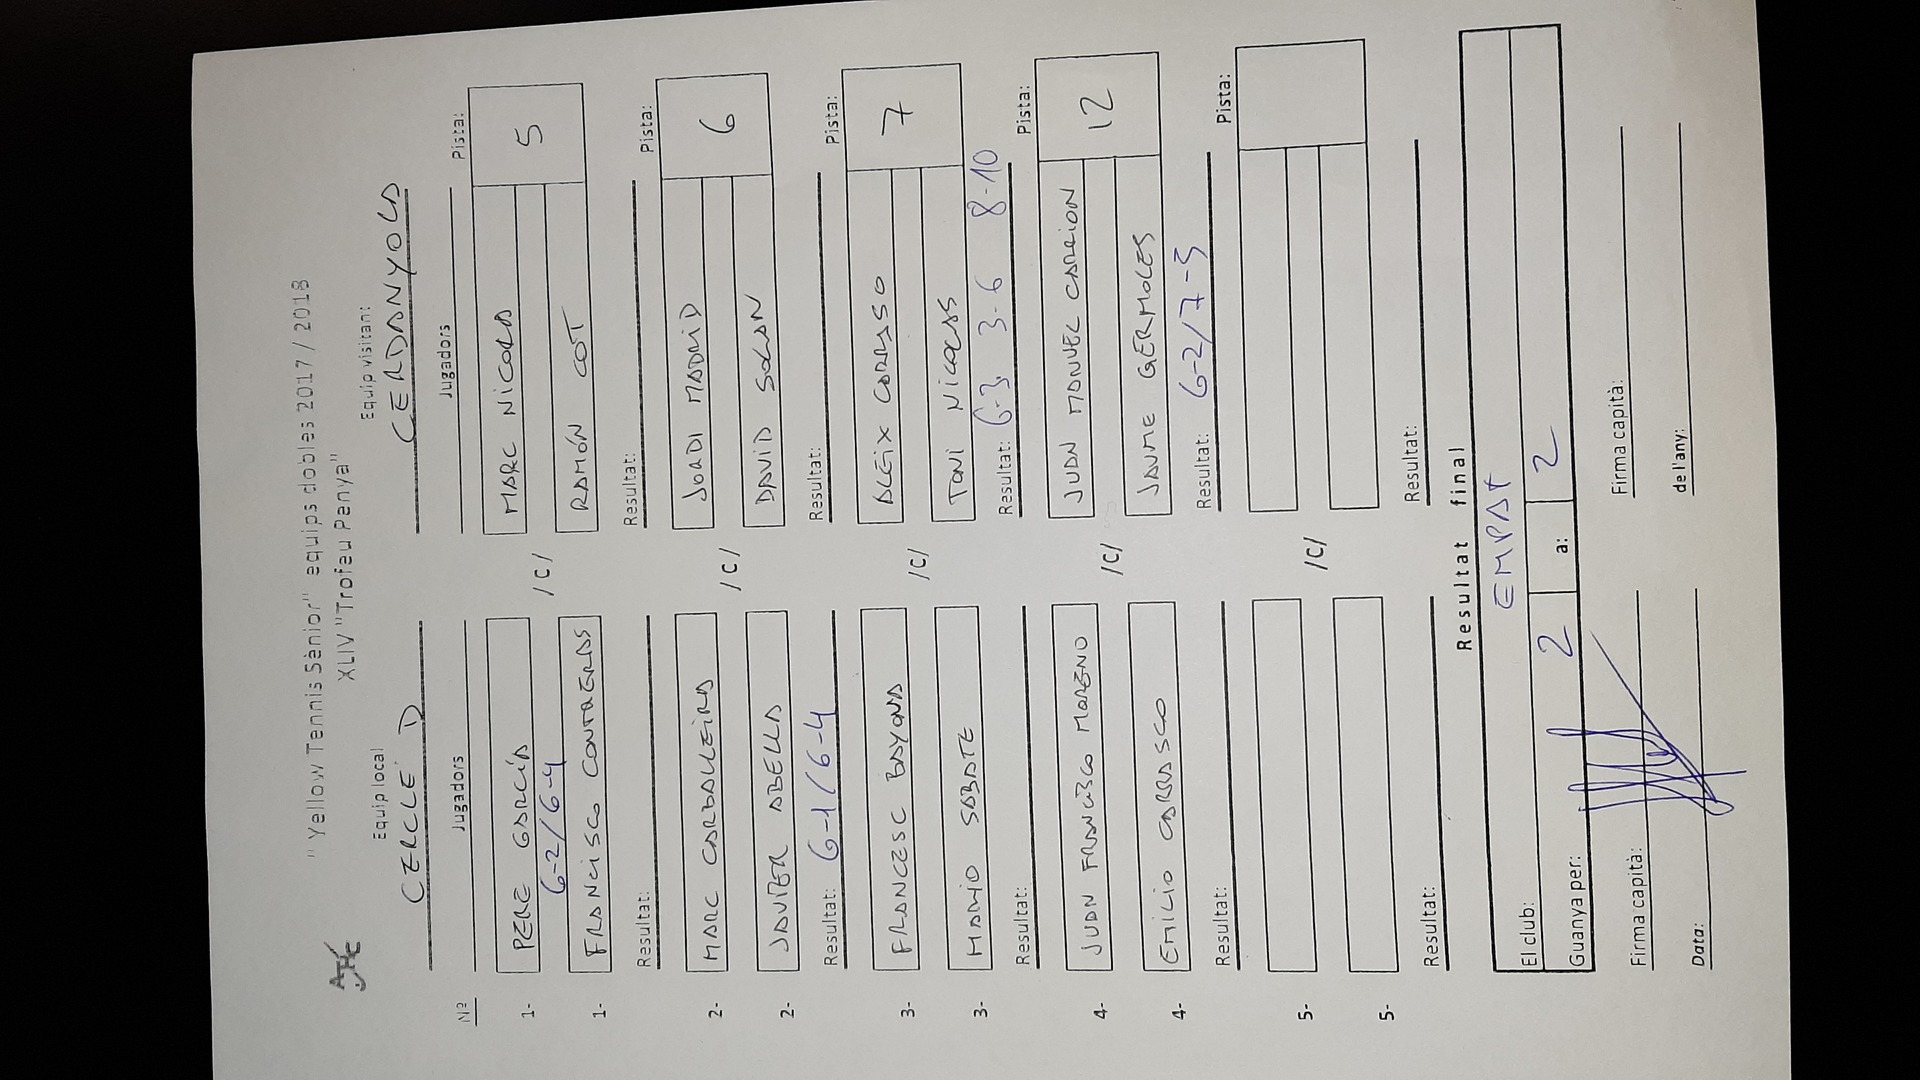 "Yellow Tennis Sènior" equips dobles 2017 / 2018
XLIV "Trofeu Penya"
Equip local Equip visitant:
CERCLE D CERDANYOLA
Nº Jugadors Jugadors Pista:
1- PERE GARCÍA /C/ MARC NICOLAS 5
6-2/6-4
1- FRANCISCO CONTRERAS RAMÓN COT
Resultat: Resultat: Pista:
2- MARC CARBALLEIRA /C/ JORDI MADRID 6
2- JAVIER ABELLA DAVID SOLAN
Resultat: 6-1/6-4 Resultat: Pista:
3- FRANCESC BAYONA /C/ ALEIX CORRASO 7
3- MARIO SABATE TONI NICOLAS
Resultat: Resultat: 6-3 3-6 8-10 Pista:
4- JUAN FRANCISCO MORENO /C/ JUAN MANUEL CARRION 12
4- EMILIO CARRASCO JAUME GERMOLES
Resultat: Resultat: 6-2/7-5 Pista:
5- /C/
5-
Resultat: Resultat:
Resultat final
El club: EMPAT
Guanya per: 2 a: 2
Firma capità: Firma capità:
Data: de l'any: